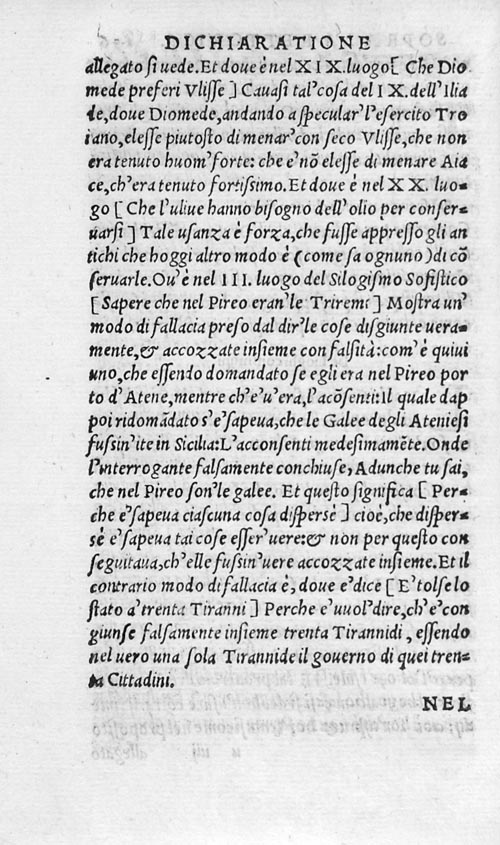 DICHIARATIONE
allegato si uede. Et doue è nel XIX. luogo [ Che Dio
mede preferi Vlisse ] Cauasi tal'cosa del IX. dell'Ilia
de, doue Diomede, andando a specular'l'esercito Tro
iano, elesse piutosto di menar'con seco Vlisse, che non
era tenuto huom'forte: che e'nõ elesse di menare Aia
ce, ch'era tenuto fortissimo. Et doue è nel XX. luo=
go [ Che l'uliue hanno bisogno dell'olio per conser=
uarsi ] Tale usanza è forza, che fusse appresso gli an
tichi che hoggi altro modo è (come sa ognuno) di cõ
seruarle. Ou'è nel III. luogo del Silogismo Sofistico
[ Sapere che nel Pireo eran'le Triremi ] Mostra un'
modo di fallacia preso dal dir'le cose disgiunte uera=
mente, & accozzate insieme con falsità: com'è quiui
uno, che essendo domandato se egli era nel Pireo por
to d'Atene, mentre ch'e'u'era, l'acõsentì: il quale dap
poi ridomãdato s'e'sapeua, che le Galee degli Ateniesi
fussin'ite in Sicilia: L'acconsenti medesimamẽte. Onde
l'interrogante falsamente conchiuse, Adunche tu sai,
che nel Pireo son'le galee. Et questo significa [ Per=
che e'sapeua ciascuna cosa dispersè ] cioè, che disper=
sè e'sapeua tai cose esser'uere: & non per questo con
seguitaua, ch'elle fussin'uere accozzate insieme. Et il
contrario modo di fallacia è, doue e'dice [ E'tolse lo
stato a'trenta Tiranni ] Perche e'uuol'dire, ch'e'con
giunse falsamente insieme trenta Tirannidi, essendo
nel uero una sola Tirannide il gouerno di quei tren=
ta Cittadini.
NEL